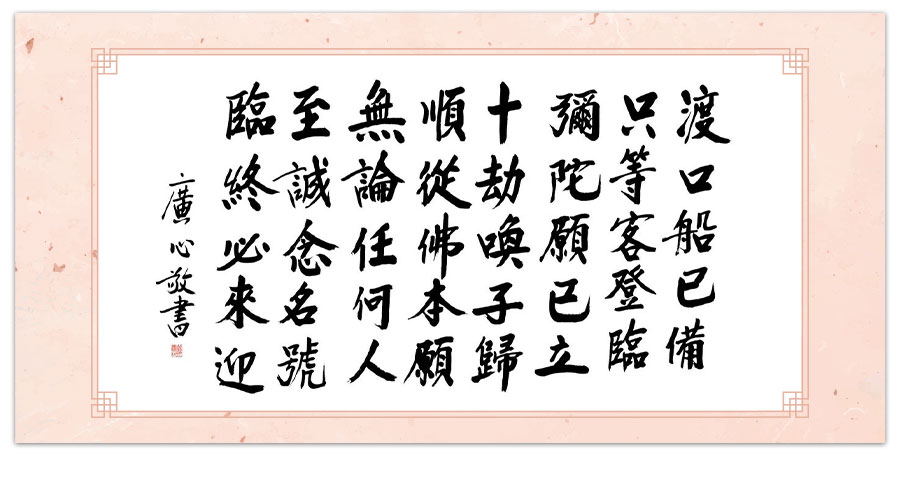 渡口船已備
只等客登臨
彌陀願已立
十劫喚子歸
順從佛本願
無論任何人
至誠念名號
臨終必來迎
廣心敬書